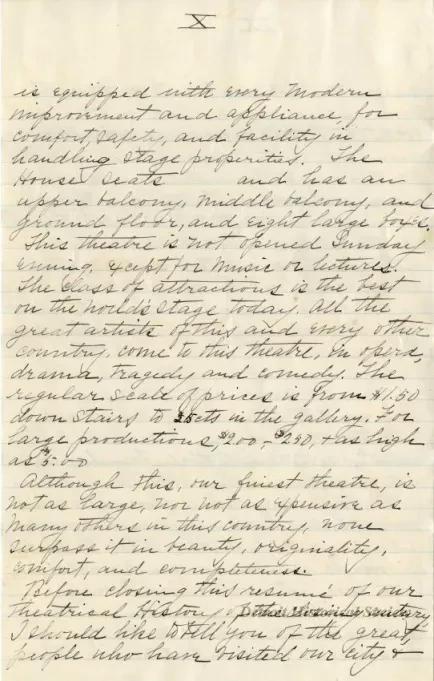 X
is equipped with every modern
improvement and appliance, for
comfort, safety, and facility in
handling stage properities. The
House seats and has an
upper balcony, middle balcony, and
ground floor, and eight large boxes.
This theatre is not opened Sunday
evening, except for music or lectures.
The class of attractions is the best
on the world's stage today. All the
great artists of this and every other
country, come to this theatre, in opera,
drama, tragedy and comedy. The
regular scale of prices is from $1.50
down stairs to 25cts in the gallery. For
large productions, $2.00 - $2.50, + as high
as $5.00
Although this, our finest theatre, is
not as large, nor not as expensive as
many others in this country, none
surpass it in beauty, originality,
comfort, and completeness.
Before closing this resumé of our
theatrical History of
I should like to tell you of the great
people who have visited our city +